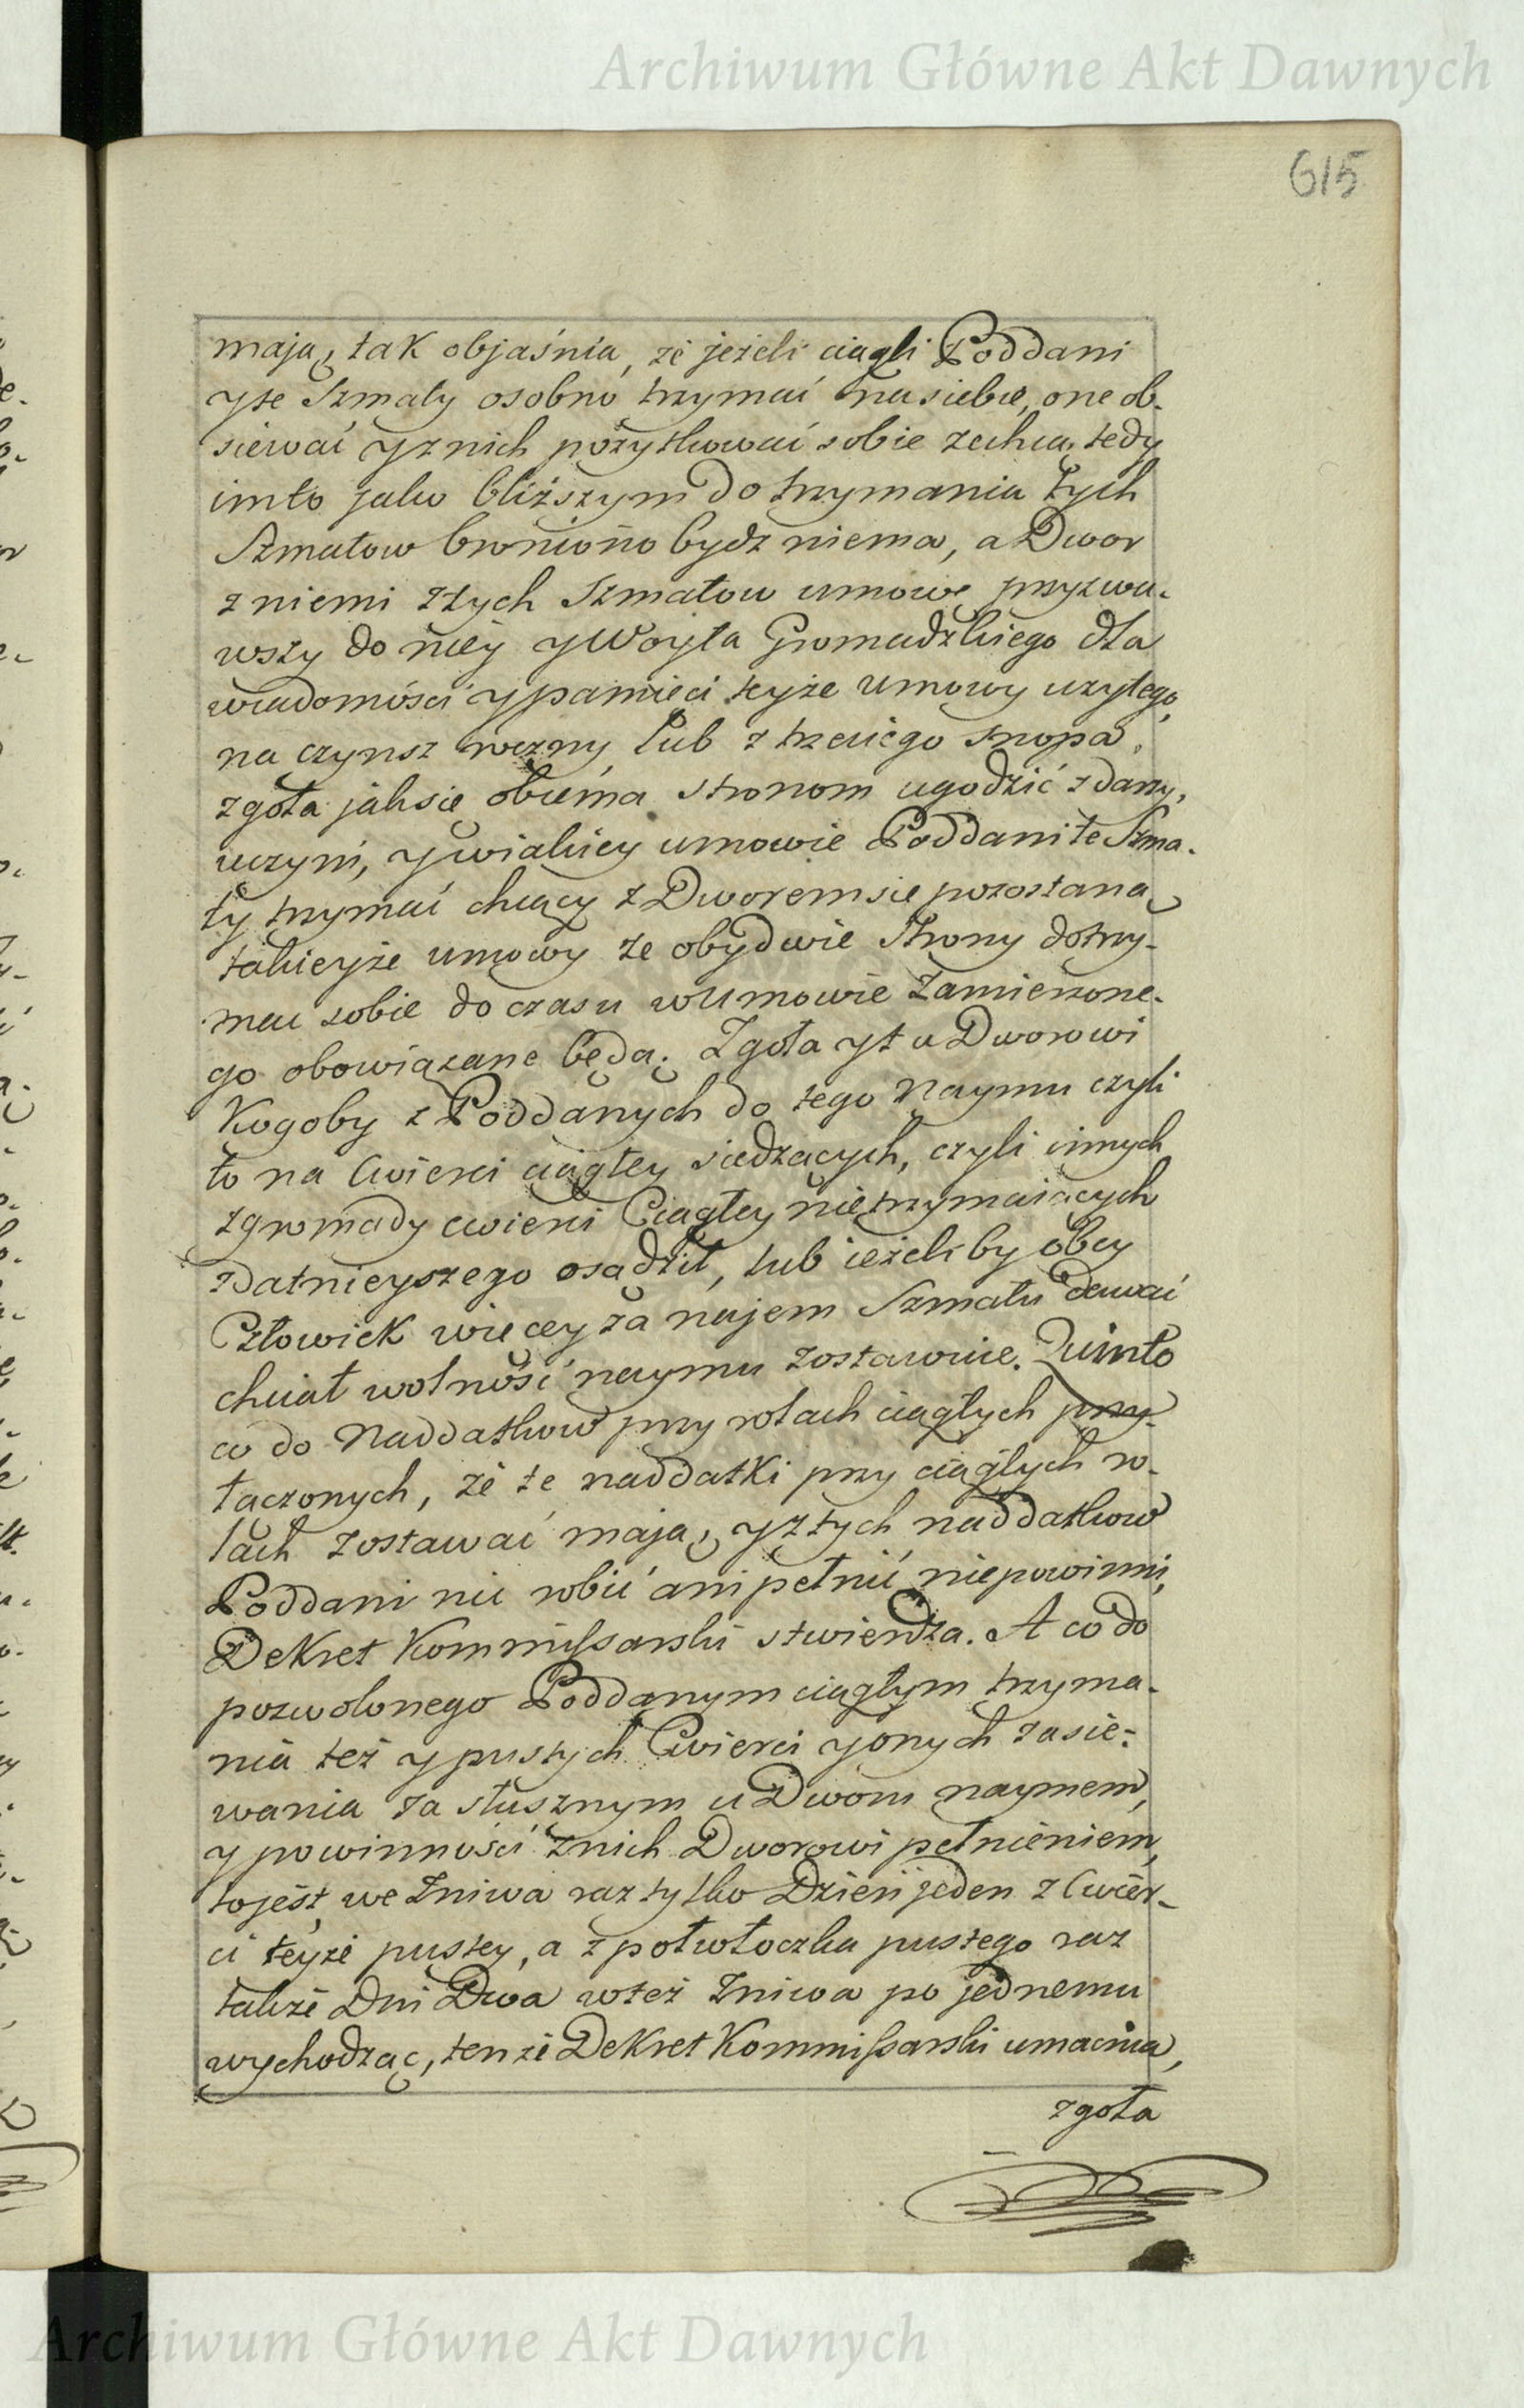 Archiwum Główne Akt Dawnych
615
mają, tak objaśnia, że jeżeli ciągli Poddani
y te Szmaty osobno trzymać na siebie, one ob-
siewać y z nich pożytkować sobie zechcą, tedy
im to jako bliższym do trzymania tych
Szmatow bronióno bydz niema, a Dwor
z niemi z tych Szmatow umowę przyzwa-
wszy do niey y Woyta Gromadzkiego dla
wiadomości y pamięci teyże umowy użytego,
na czynsz roczny lub z trzeciego snopa,
zgoła jak się obiema stronom ugodzić zdarzy,
uczyni, y w iakiey umowie Poddani te Szma-
ty trzymać chcący z Dworem się pozostaną
takieyże umowy ze obydwie Strony dotrzy-
mać sobie do czasu w Umowie zamierzone-
go obowiązane będą. Zgoła y tu Dworowi
Kogoby z Poddanych do tego Naymu czyli
to na Cwierci ciągłey siedzących, czyli innych
z gromady cwierci Ciągłey nie trzymaiących
zdatnieyszego osądził, lub ieżeliby obcy
Człowiek więcey za najem Szmatu dawać
chciał wolność naymu zostawuie. Quinto
co do Naddatkow przy rolach ciągłych przy-
łączonych, że te naddatki przy ciągłych ro-
lach zostawać mają, y z tych naddatkow
Poddani nic robić ani pełnić niepowinni,
Dekret Kommissarski stwierdza. A co do
pozwolonego Poddanym ciągłym trzyma-
nia też y pustych Cwierci y onych zasie-
wania za słusznym u Dworu naymem,
y powinności z nich Dworowi pełnieniem,
to jest we Zniwa raz tylko Dzień jeden z Cwier-
ci teyże pustey, a z połwłoczka pustego raz
także Dni Dwa w też Zniwa po jednemu
wychodząc, tenże Dekret Kommissarski umacnia,
zgoła
Archiwum Główne Akt Dawnych